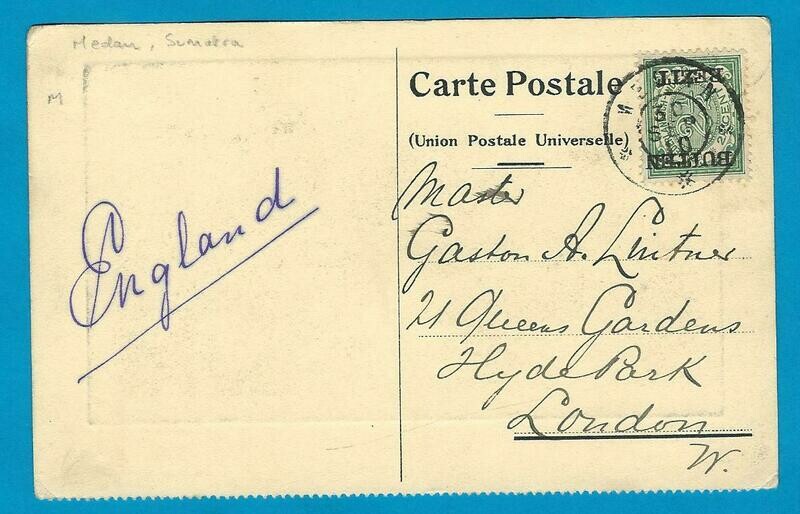 Medan, Sumatra
M
Carte Postale
(Union Postale Universelle)
BUITEN
BEZIT.
Master
Gaston A. Lintner
21 Queens Gardens
Hyde Park
London
W.
England